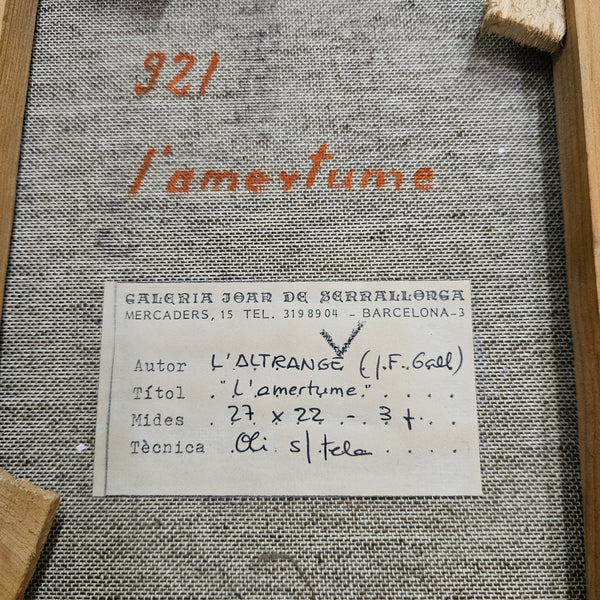 921
l'amertume
GALERIA JOAN DE SERRALLONGA
MERCADERS, 15 TEL. 3198904 - BARCELONA-3
Autor L'ALTRANGE (J.F. Gall)
Títol ."L'amertume." . . . .
Mides . 27 x 22 . - . 3 f . . .
Tècnica . Oli . s/ tela . . . . .